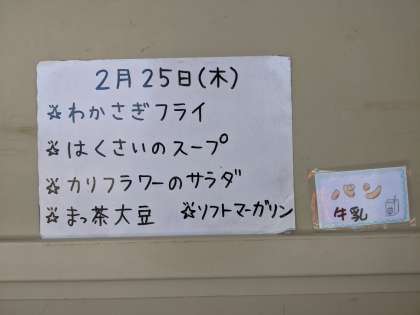 2月25日(木)
☆わかさぎフライ
☆はくさいのスープ
☆カリフラワーのサラダ
☆まっ茶大豆 ☆ソフトマーガリン
パン
牛乳